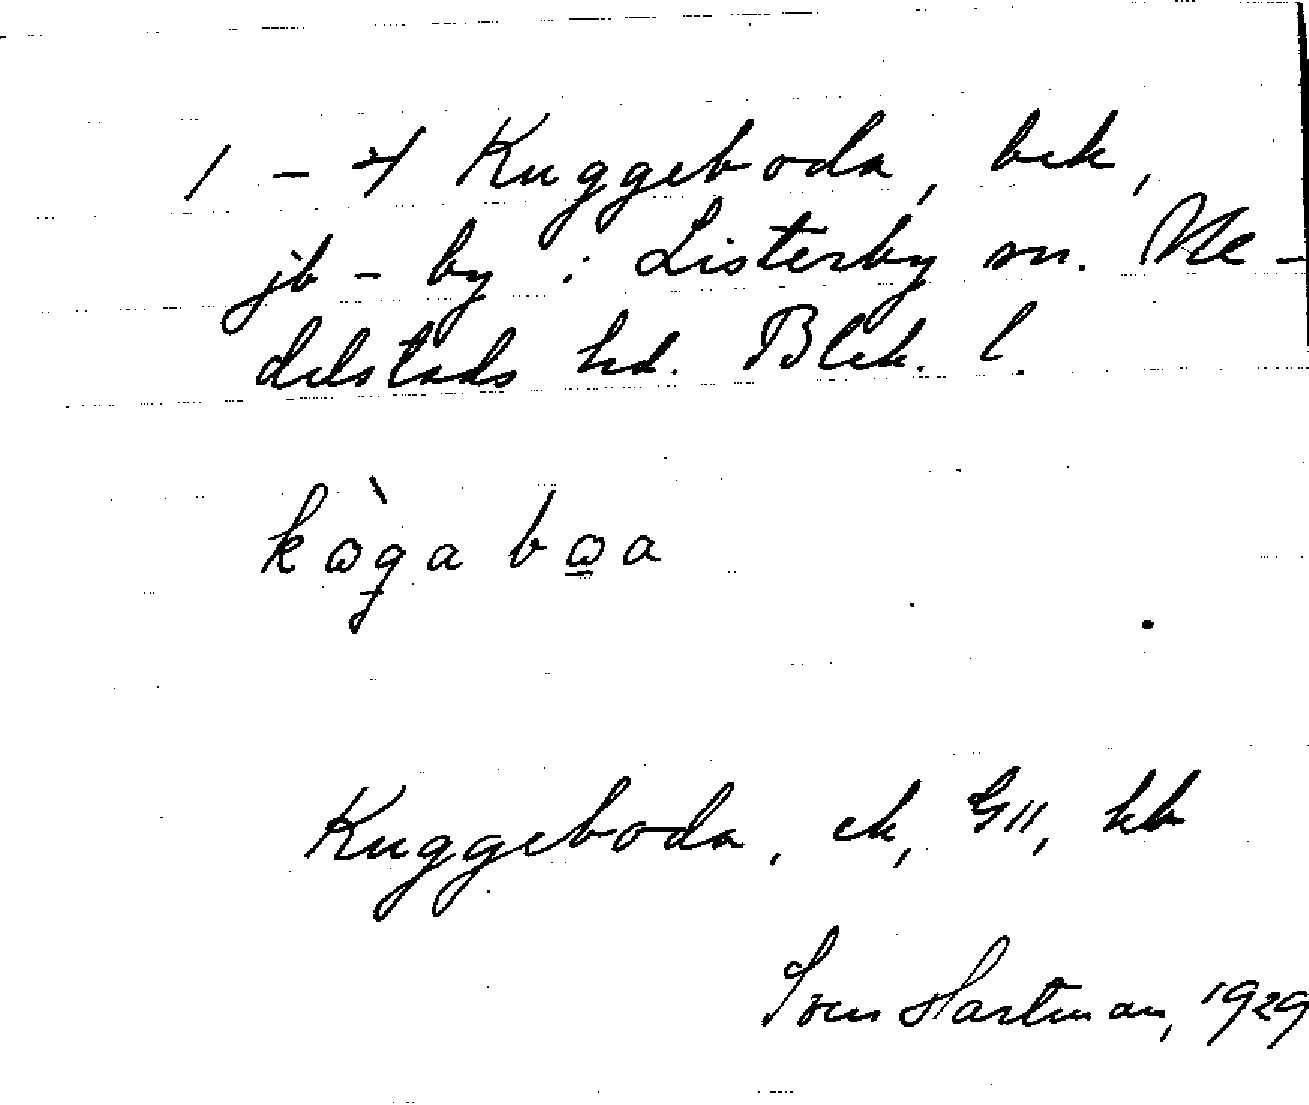 1 – 4 Kuggeboda, bek,
jb – by i Listerby sn. Me-
delstads hd. Blek. l.
kὼga bω̲a
Kuggeboda, ek, GII, kb
Sven Hartman, 1929